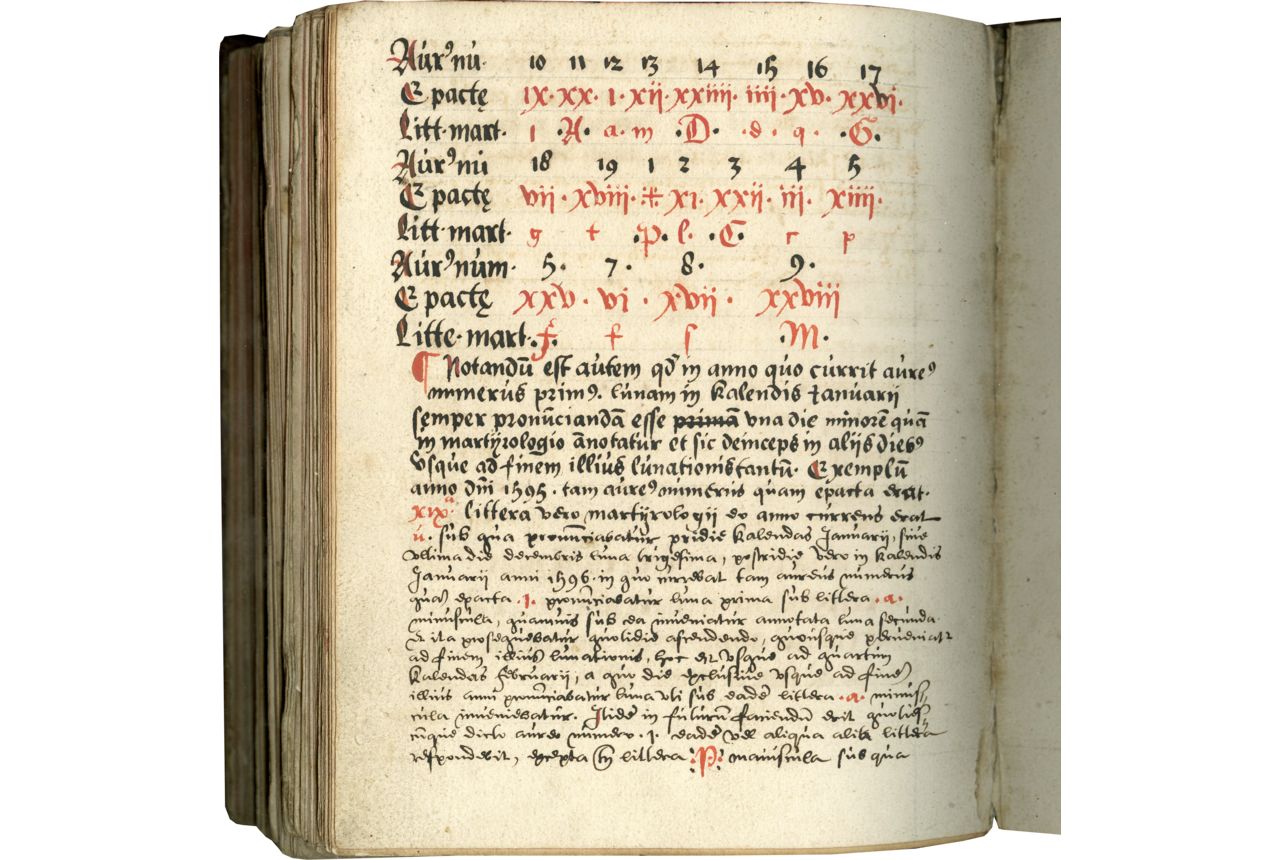 Aur⁹ nu· 10 11 12 13 14 15 16 17
Epactę ix· xx· i· xii· xxiiii· iiii· xv· xxvi·
Litt· mart· i ·A· a· m ·D· ·d· q· ·G·
Aur⁹ nu 18 19 1 2 3 4 5
Epactę vii· xviii· ⁜ xi· xxii· iii· xiiii·
Litt· mart· g t ·P· l· ·C· c p
Aur⁹ num· 5· 7· 8· 9·
Epactę xxv· vi· xvii· xxviii
Litte· mart· ·f· f s ·M·
¶ Notandū est autem qđ in anno quo currit aure⁹
numerus prim⁹· lunam in kalendis Januarii
semper pronūciandā esse primā vna die minorē quā
in martyrologio ānotatur et sic deinceps in alijs dieb⁹
vsque ad finem illius lunationis tantū· Exemplū
anno dm̄i 1595· tam aure⁹ numerus quam epacta erat·
xixᵃ· littera vero martyrologii eo anno currens erat
u· sub qua pronunciabatur pridie kalendas Januarii, siue
vltima die decembris luna trigesima, postridie vero in kalendis
Januarii anni 1596· in quo currebat tam aureus numerus
quā epacta ·1· pronūciabatur luna prima sub littera ·a·
minuscula, quamuis sub ea inueniatur annotata luna secunda·
et ita prosequebatur quotidie ascendendo, quousque perueniatʳ
ad finem illius lunationis, hoc est vsque ad quartum
kalendas februarii, a quo die exclusiue vsque ad finē
illius anni pronūciabatur luna vti sub eadē littera ·a· minus-
cula inueniebatur· Itidē in futurum faciendū erit quoties-
cunque dicto aureo numero ·1· eadē vel aliqua alia littera
responderit, excepta tm̄ littera ·P· maiuscula sub qua